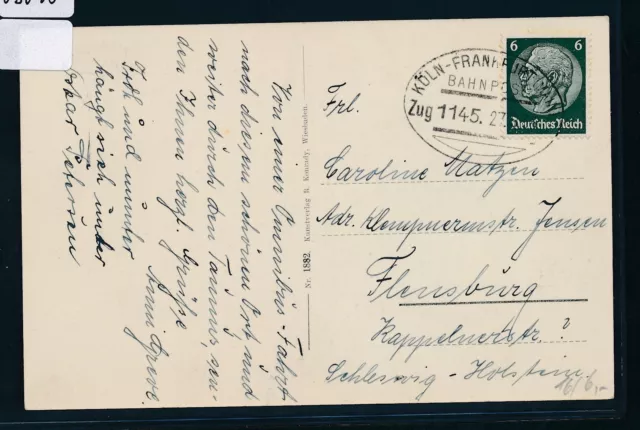 Von einer Omnibus-Fahrt
nach diesem schönen Ort und
weiter durch den Taunus, sen-
den Ihnen herzl. Grüße
Anni Greve.
Froh und munter
hängt sich unter
Oskar Petersen
Nr. 1882. Kunstverlag B. Konrady, Wiesbaden.
KÖLN-FRANKF
BAHNPO
Zug 1145. 27
6 6
Deutsches Reich
Frl.
Caroline Matzen
Adr. Klempnermstr. Jensen
Flensburg
Kappelnerstr. ?
Schleswig-Holstein